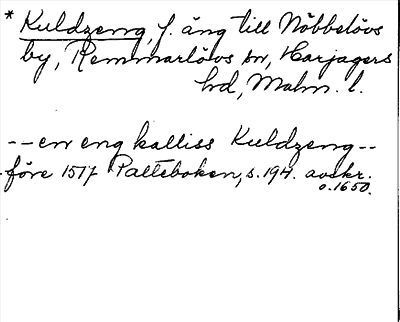 * Kuldzeng, f. äng till Nöbbelövs
by, Remmarlövs sn, Harjagers
hd, Malm. l.
-- en eng kalliss Kuldzeng --
före 1517 Palteboken, s. 194. avskr.
o. 1650.